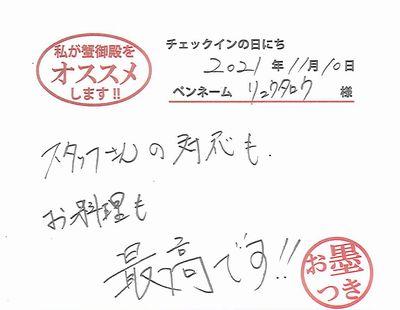 私が蟹御殿を
オススメ
します!!
チェックインの日にち
2021年11月10日
ペンネーム リュウタロウ 様
スタッフさんの対応も.
お料理も
最高です!!
お墨
つき